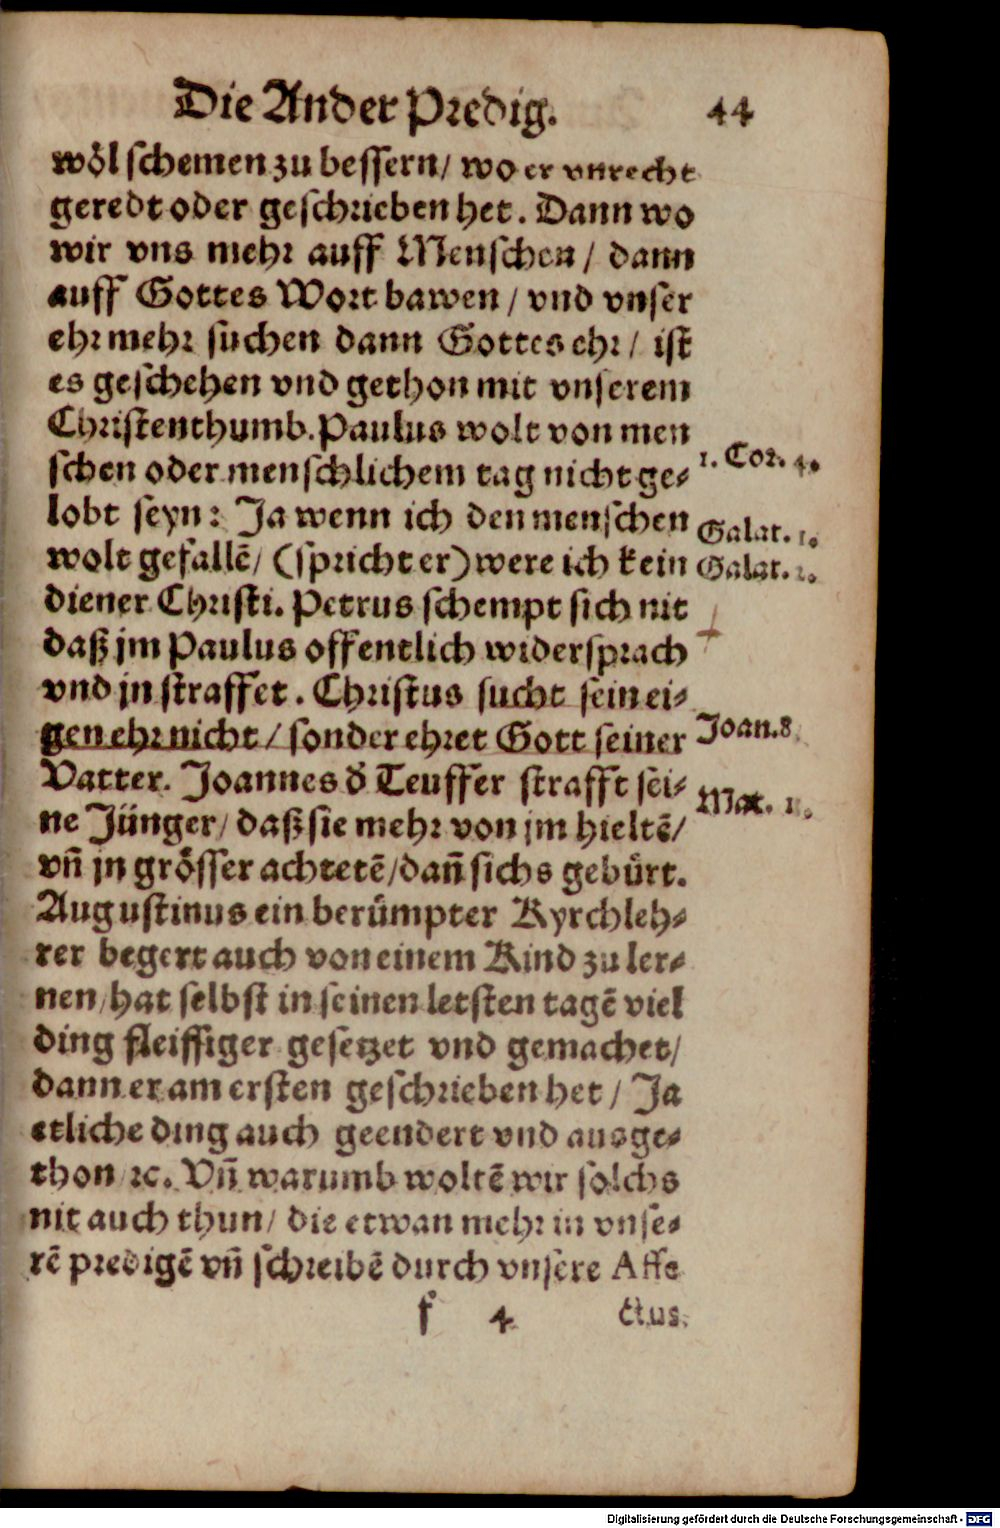 Die Ander Predig. 44
wöl schemen zu bessern/ wo er vnrecht
geredt oder geschrieben het. Dann wo
wir vns mehr auff Menschen/ dann
auff Gottes Wort bawen/ vnd vnser
ehr mehr suchen dann Gottes ehr/ ist
es geschehen vnd gethon mit vnserem
Christenthumb. Paulus wolt von men
schen oder menschlichem tag nicht ge-
1. Cor. 4.
lobt seyn: Ja wenn ich den menschen
Galat. 1.
wolt gefallē/ (spricht er) were ich kein
Galat. 2.
diener Christi. Petrus schempt sich nit
daß jm Paulus offentlich widersprach
vnd jn straffet. Christus sucht sein ei-
gen ehr nicht/ sonder ehret Gott seiner
Joan. 8.
Vatter. Joannes d̕ Teuffer strafft sei-
Mat. 11.
ne Jünger/ daß sie mehr von jm hieltē/
vñ jn grösser achtetē/ dañ sichs gebürt.
Augustinus ein berümpter Kyrchleh-
rer begert auch von einem Kind zu ler-
nen/ hat selbst in seinen letsten tagē viel
ding fleissiger gesetzet vnd gemachet/
dann er am ersten geschrieben het/ Ja
etliche ding auch geendert vnd ausge-
thon ꝛc. Vñ warumb woltē wir solchs
nit auch thun/ die etwan mehr in vnse-
rē predigē vñ schreibē durch vnsere Affe
f 4 ctus.
Digitalisierung gefördert durch die Deutsche Forschungsgemeinschaft - DFG